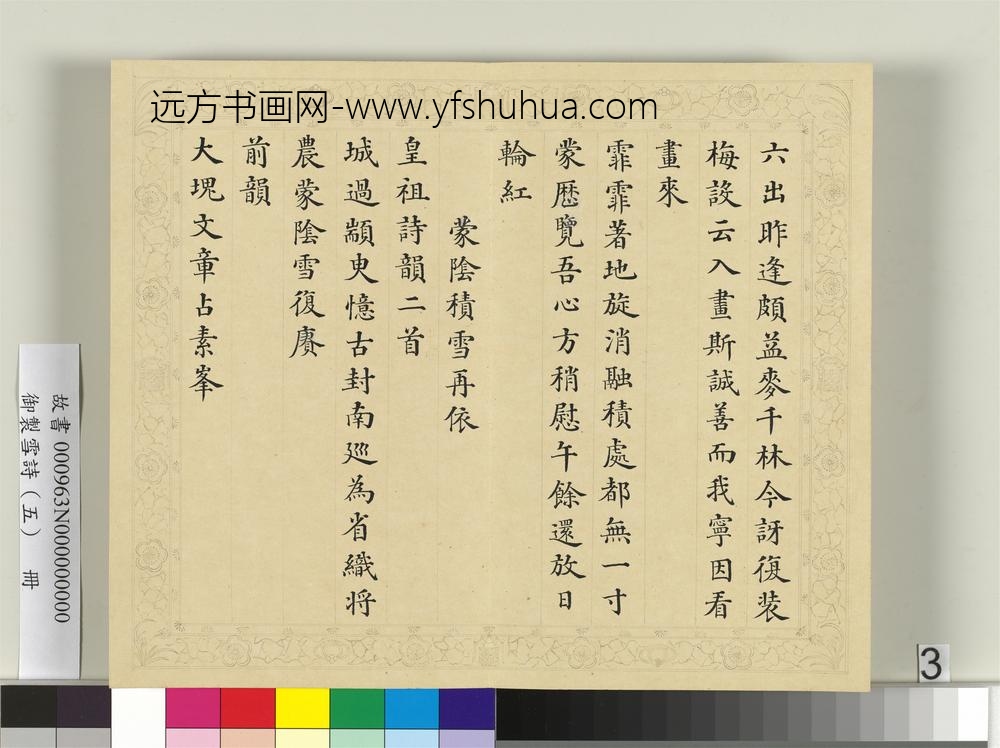 远方书画网-www.yfshuhua.com
六出昨逢頗益麥千林今訝復装
梅設云入畫斯誠善而我寧因看
畫來
霏霏著地旋消融積處都無一寸
蒙歴覽吾心方稍慰午餘還放日
輪紅
蒙陰積雪再依
皇祖詩韻二首
城過顓臾憶古封南廵為省織將
農蒙陰雪復賡
前韻
大塊文章占素峯
故書 000963N000000000
御製雪詩(五) 冊
3